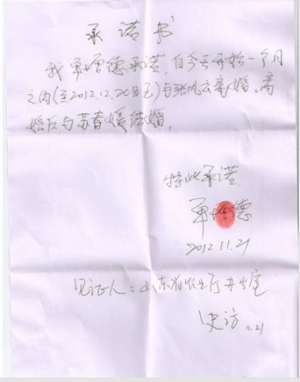 承诺书
我单增德承诺,自今天开始一个月
之内(至2012.12.20日)与张化云离婚。离
婚后与苏春媛结婚。
特此承诺
单增德
2012.11.21
见证人:山东省农业厅办公室
史访 11.21